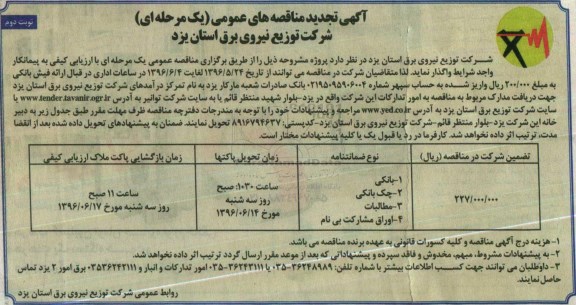 نوبت دوم
آگهی تجدید مناقصه های عمومی (یک مرحله ای)
شرکت توزیع نیروی برق استان یزد
شرکت توزیع نیروی برق استان یزد در نظر دارد پروژه مشروحه ذیل را از طریق برگزاری مناقصه عمومی یک مرحله ای با ارزیابی کیفی به پیمانکار
واجد شرایط واگذار نماید. لذا متقاضیان شرکت در مناقصه می توانند از تاریخ ۱۳۹۶/۵/۲۴ لغایت ۱۳۹۶/۶/۴ در ساعات اداری در قبال ارائه فیش بانکی
به مبلغ ۲۰۰/۰۰۰ ریال واریز شده به حساب سپهر شماره ۰۲۱۹۵۰۹۵۹۰۶۰۰۲ بانک صادرات شعبه مارکار یزد به نام تمرکز درآمدهای شرکت توزیع نیروی برق استان یزد
جهت دریافت مدارک مربوط به مناقصه به امور تدارکات این شرکت واقع در یزد-بلوار شهید منتظر قائم یا به سایت شرکت توانیر به آدرس www.tender.tavanir.ogr.ir یا
سایت شرکت توزیع برق استان یزد به آدرس www.yed.co.ir مراجعه و پیشنهادات خود را با توجه به مندرجات دفترچه مناقصه ظرف مهلت مقرر طبق جدول زیر به دبیر
خانه این شرکت یزد-بلوار منتظر قائم -شرکت توزیع نیروی برق استان یزد-کدپستی: ۸۹۱۶۷۹۴۶۳۷ تحویل نمایند. ضمنان به پیشنهادهای تحویل داده شده بعد از انقضا
مدت، ترتیب اثر داده نخواهد شد. کارفرما در رد یا قبول یک یا کلیه پیشنهادات مختار است.
تضمین شرکت در مناقصه (ریال) نوع ضمانتنامه زمان تحویل پاکتها زمان بازگشایی پاکت ملاک ارزیابی کیفی
۲۲۷/۰۰۰/۰۰۰
۱-بانکی
۲-چک بانکی
۳-مطالبات
۴-اوراق مشارکت بی نام
ساعت ۱۰:۳۰ صبح
روز سه شنبه
مورخ ۱۳۹۶/۰۶/۱۴
ساعت ۱۱ صبح
روز سه شنبه مورخ ۱۳۹۶/۰۶/۱۷
۱- هزینه درج آگهی مناقصه و کلیه کسورات قانونی به عهده برنده مناقصه می باشد.
۲- به پیشنهادات مشروط، مبهم، مخدوش و فاقد سپرده و پیشنهاداتی که بعد از موعد مقرر ارسال گردد ترتیب اثر داده نخواهد شد.
۳- داوطلبان می توانند جهت کسب اطلاعات بیشتر با شماره تلفن: ۳۶۲۴۸۹۸۹-۰۳۵ یا ۳۶۲۴۳۱۱۱-۰۳۵ امور تدارکات و انبار و ۰۳۵۳۶۲۴۳۱۱۱ برق امور ۲ یزد تماس
حاصل نمایند.
روابط عمومی شرکت توزیع نیروی برق استان یزد